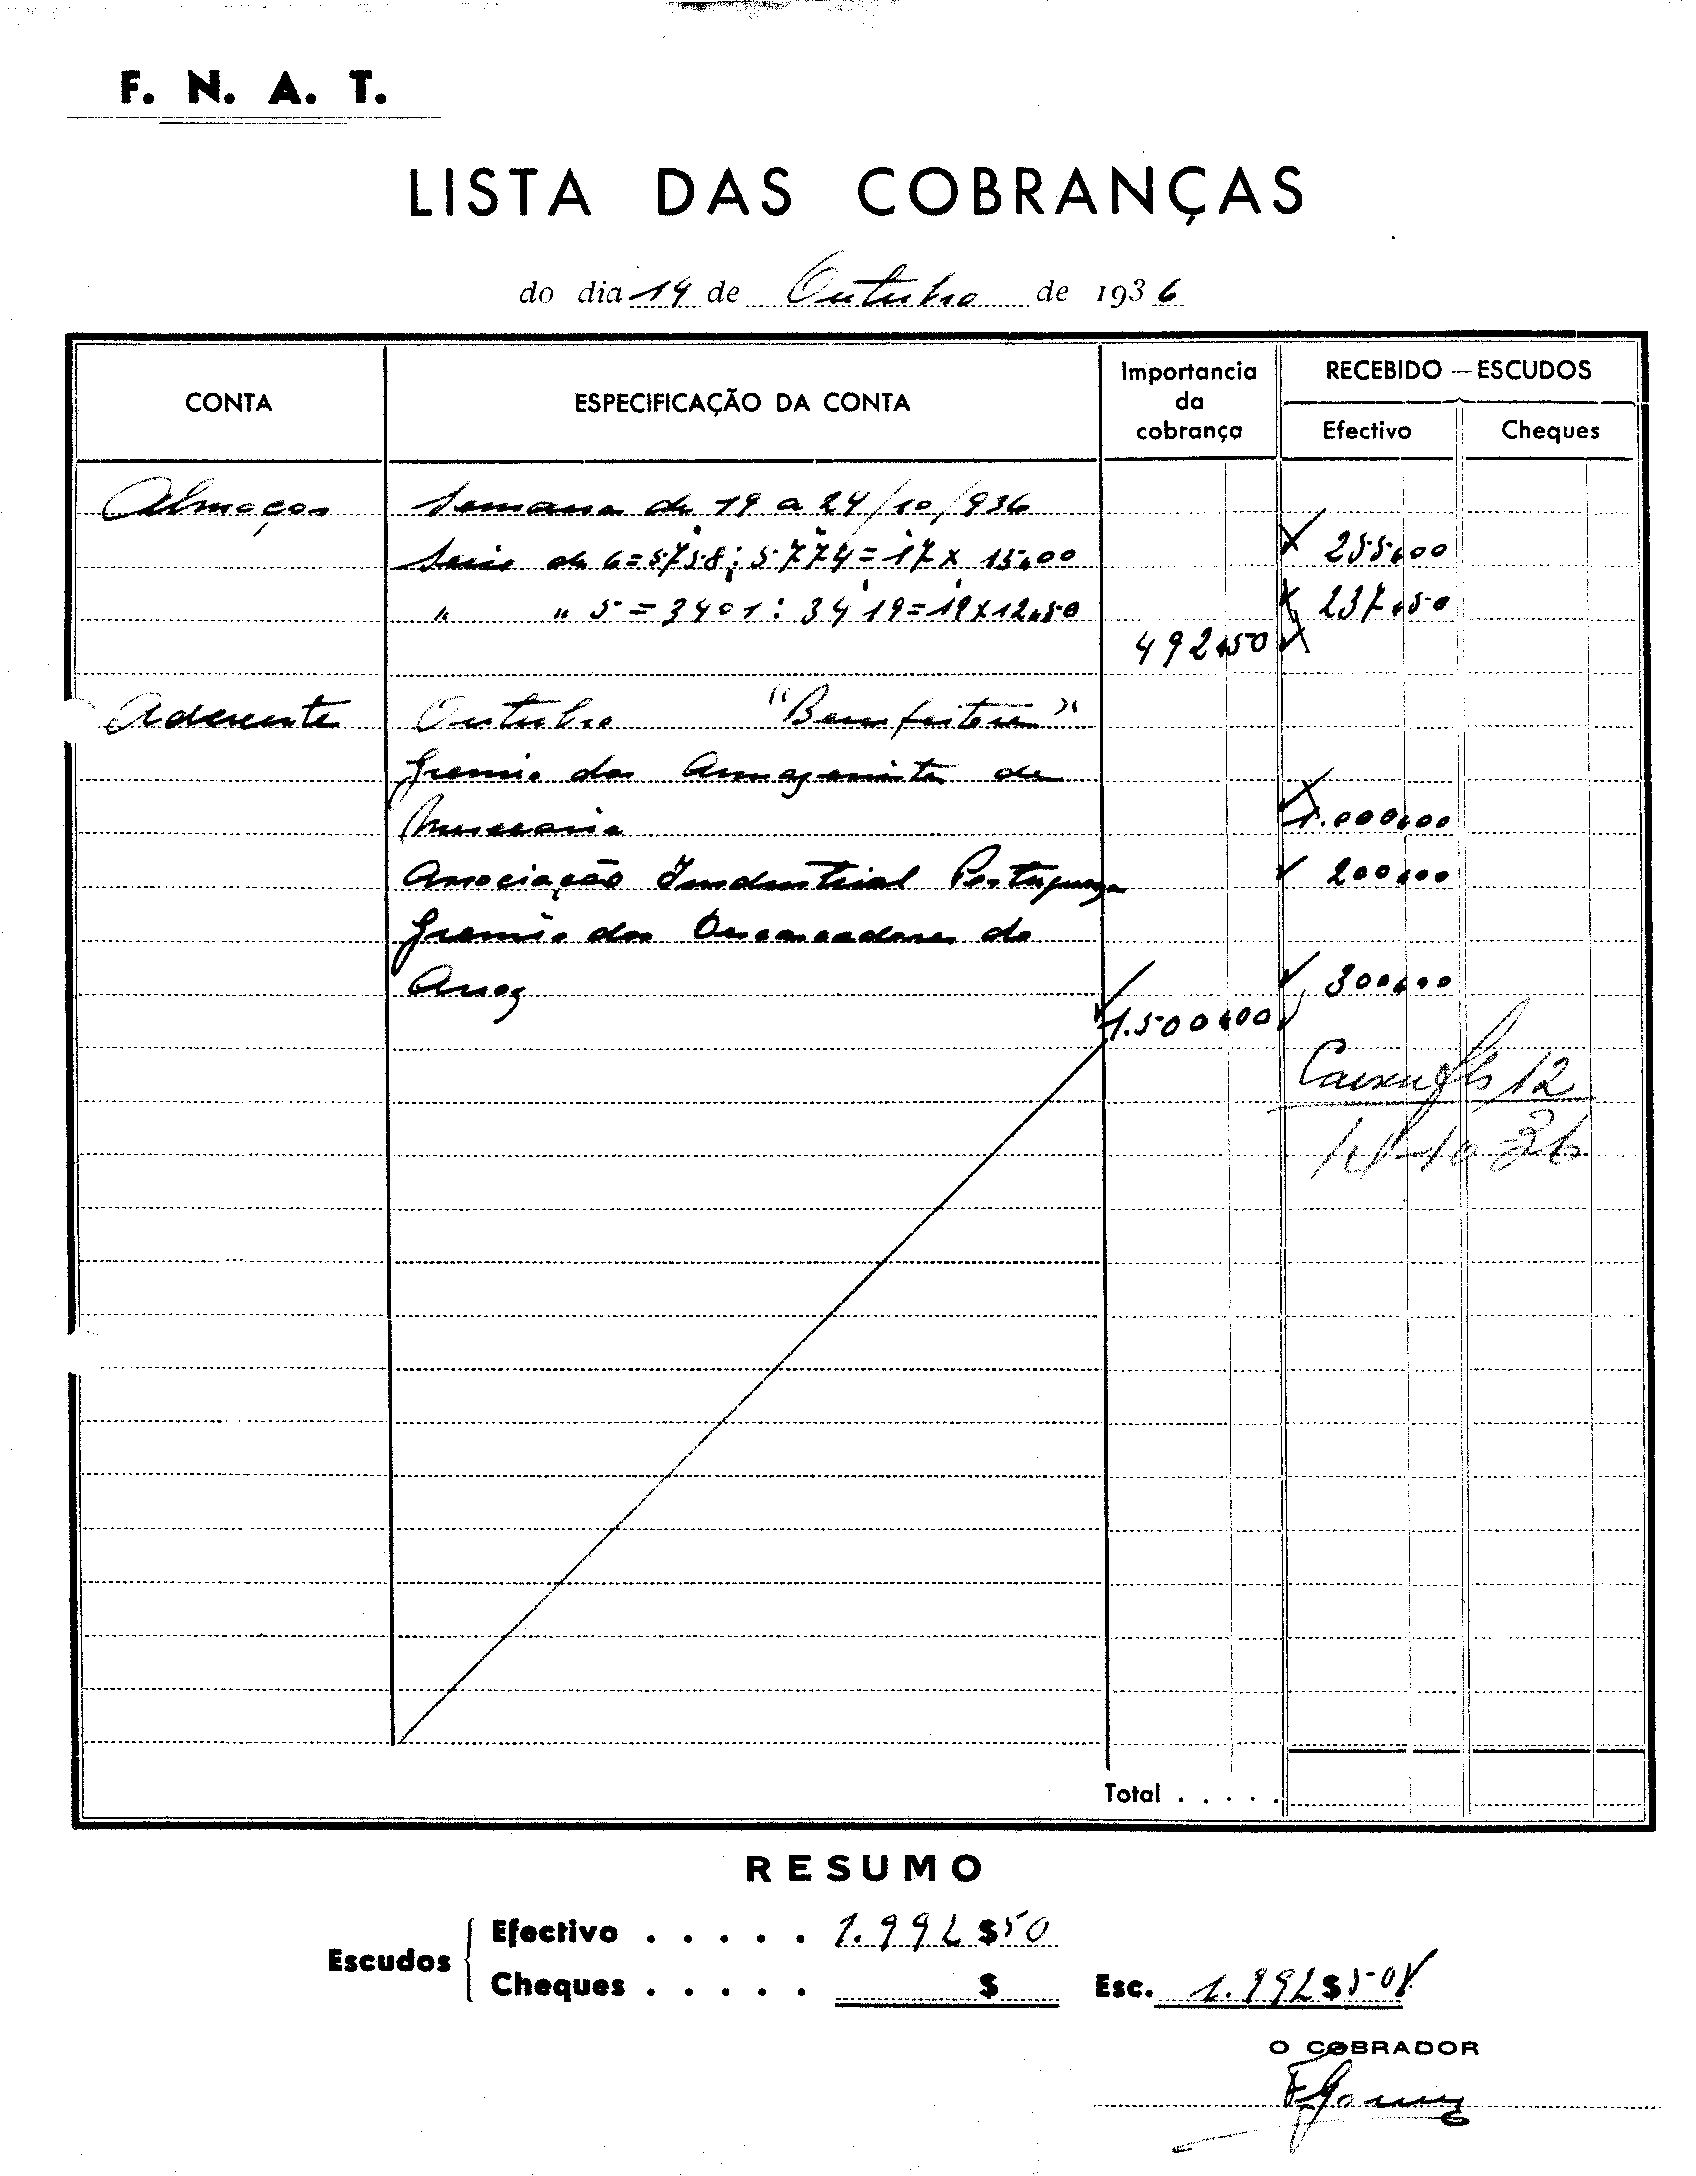 F. N. A. T.
LISTA DAS COBRANÇAS
do dia 19 de Outubro de 1936
CONTA
ESPECIFICAÇÃO DA CONTA
Importancia da cobrança
RECEBIDO — ESCUDOS
Efectivo
Cheques
Almoços Semana de 19 a 24/10/936
Serie de 6 = 5758 : 5774 = 17 x 15$00 255$00
" " 5 = 3401 : 3419 = 19 x 12$50 237$50
492$50
Aderente Outubro "Bemfeitores"
Gremio dos Armazenistas de
Mercearia 1.000$00
Associação Industrial Portugueza 200$00
Gremio dos Descascadores de
Arroz 300$00
1.500$00
Caixa fls 12
10-36
Total . . . . .
RESUMO
Escudos
Efectivo . . . . . 1.992$50
Cheques . . . . . $
Esc. 1.992$50
O COBRADOR
F Gomes